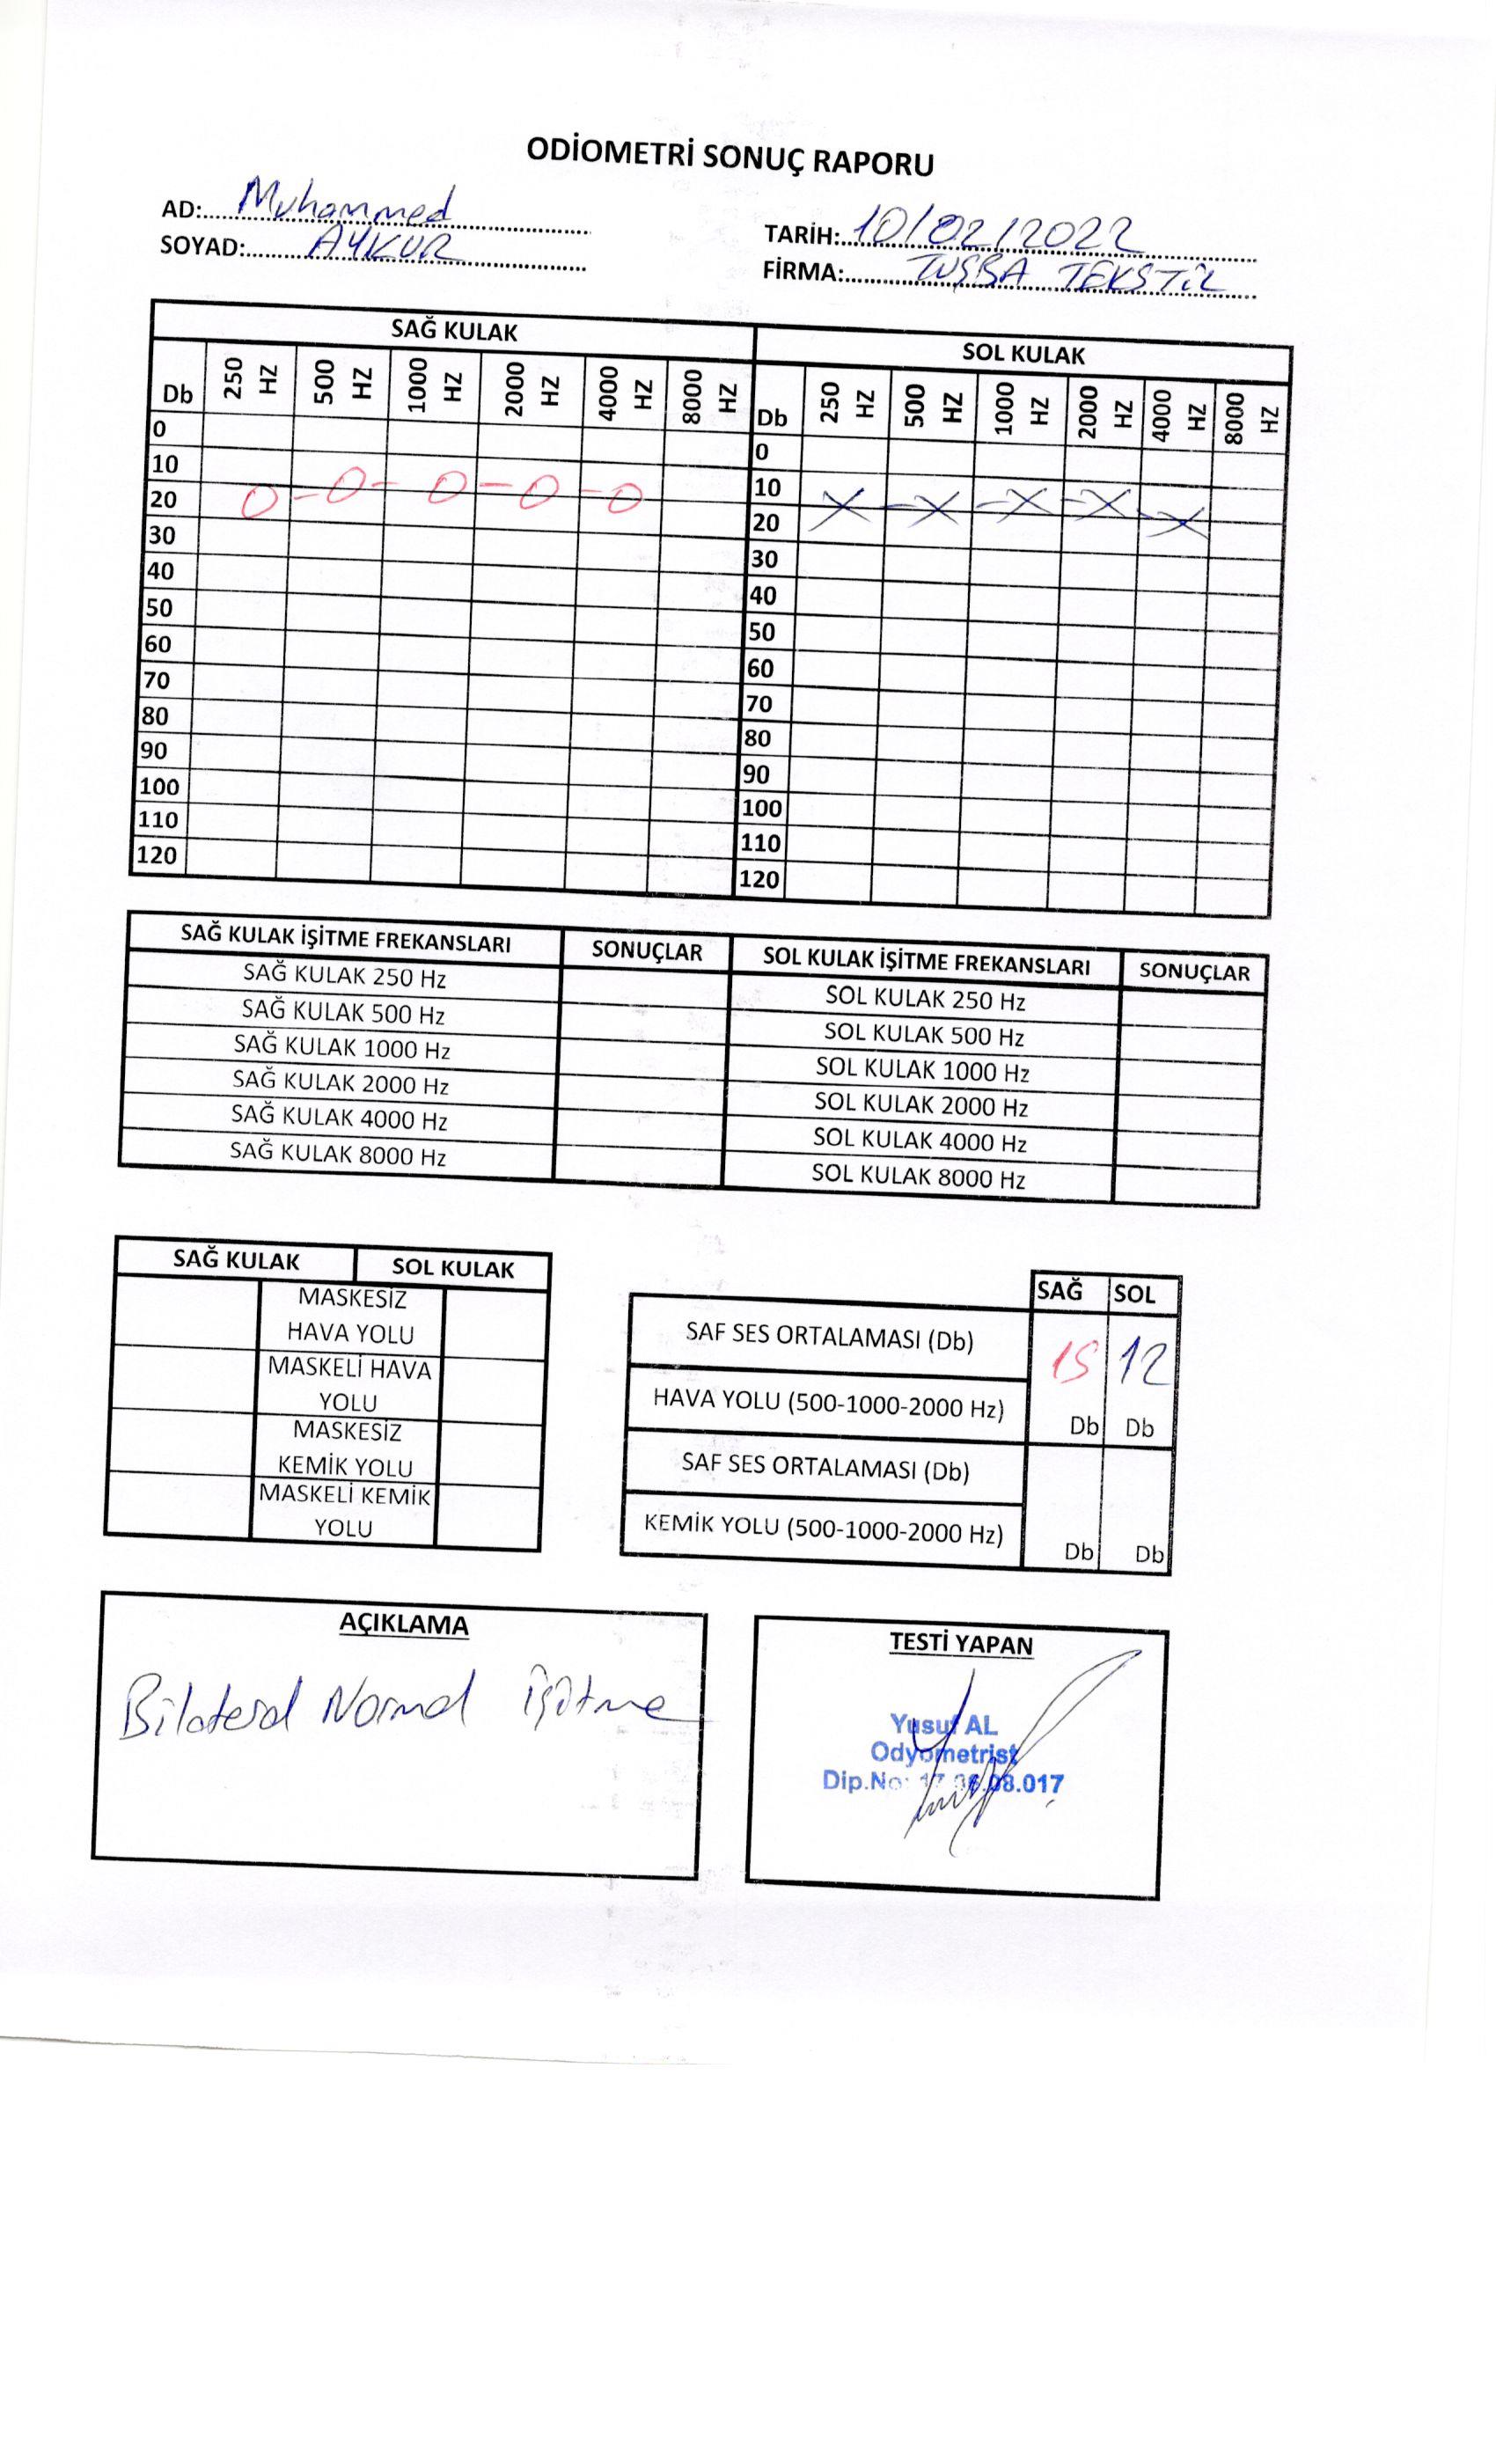 ODİOMETRİ SONUÇ RAPORU
AD: Muhammed
SOYAD: AYKUR
TARİH: 10/02/2022
FİRMA: TUŞBA TEKSTİL
SAĞ KULAK
SOL KULAK
Db 250 HZ 500 HZ 1000 HZ 2000 HZ 4000 HZ 8000 HZ Db 250 HZ 500 HZ 1000 HZ 2000 HZ 4000 HZ 8000 HZ
0 0
10 10
20 20
30 30
40 40
50 50
60 60
70 70
80 80
90 90
100 100
110 110
120 120
SAĞ KULAK İŞİTME FREKANSLARI SONUÇLAR SOL KULAK İŞİTME FREKANSLARI SONUÇLAR
SAĞ KULAK 250 Hz SOL KULAK 250 Hz
SAĞ KULAK 500 Hz SOL KULAK 500 Hz
SAĞ KULAK 1000 Hz SOL KULAK 1000 Hz
SAĞ KULAK 2000 Hz SOL KULAK 2000 Hz
SAĞ KULAK 4000 Hz SOL KULAK 4000 Hz
SAĞ KULAK 8000 Hz SOL KULAK 8000 Hz
SAĞ KULAK SOL KULAK
MASKESİZ
HAVA YOLU
MASKELİ HAVA
YOLU
MASKESİZ
KEMİK YOLU
MASKELİ KEMİK
YOLU
SAĞ SOL
SAF SES ORTALAMASI (Db) 15 12
HAVA YOLU (500-1000-2000 Hz) Db Db
SAF SES ORTALAMASI (Db)
KEMİK YOLU (500-1000-2000 Hz) Db Db
AÇIKLAMA
Bilateral Normal işitme
TESTİ YAPAN
Yusuf AL
Odyometrist
Dip.No: 17.06.08.017